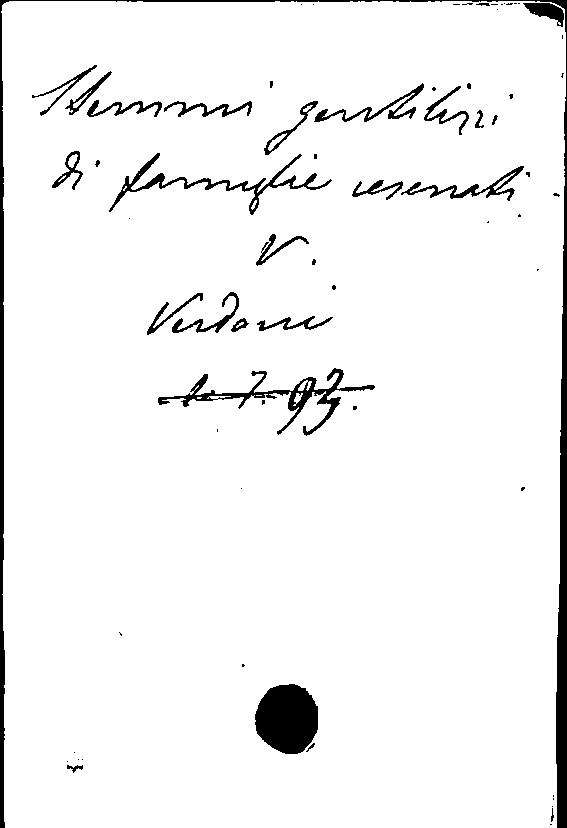 Stemmi gentilizi
di famiglie cesenati
V.
Verdoni